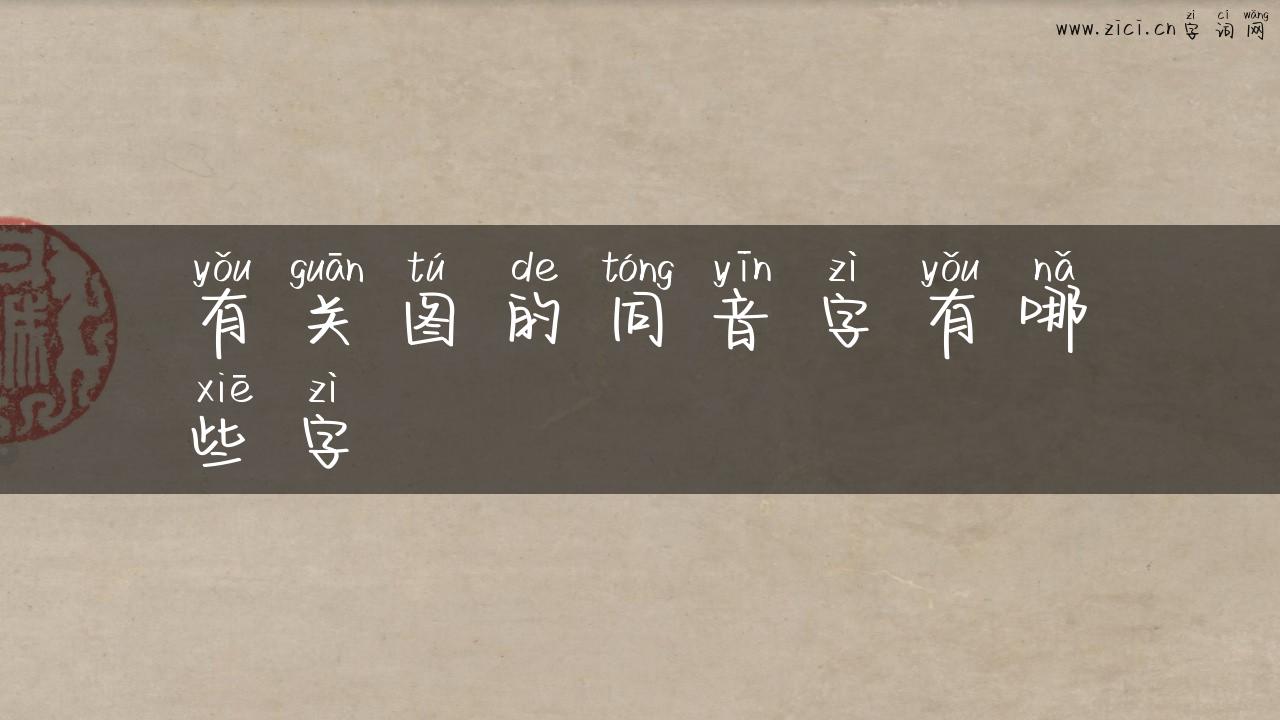 www.zici.cn zì cí wǎng
字 词 网
yǒu guān tú de tóng yīn zì yǒu nǎ
有 关 图 的 同 音 字 有 哪
xiē zì
些 字